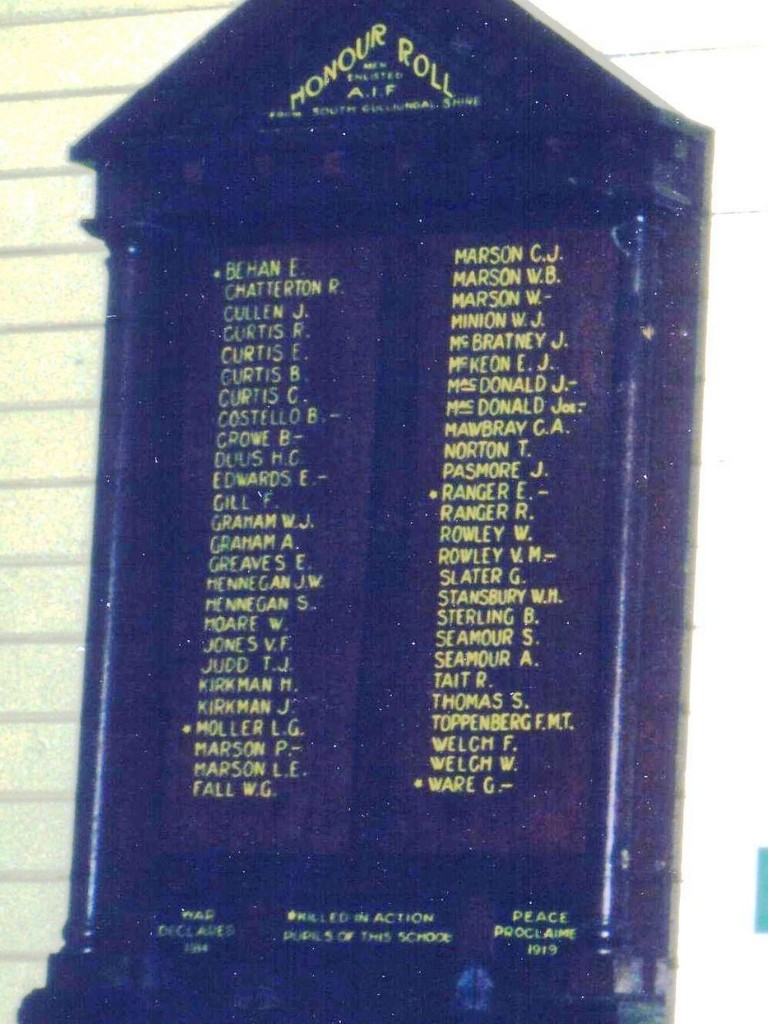 HONOUR ROLL
MEN
ENLISTED
A.I.F
FROM SOUTH GULLIUNGAL SHIRE
* BEHAN E.
CHATTERTON R.
CULLEN J.
CURTIS R.
CURTIS E.
CURTIS B.
CURTIS C.
COSTELLO B.-
CROWE B-
DUUS H.C.
EDWARDS E.-
GILL F.
GRAHAM W.J.
GRAHAM A.
GREAVES E.
HENNEGAN J.W.
HENNEGAN S.
HOARE W.
JONES V.F.
JUDD T.J.
KIRKMAN H.
KIRKMAN J.
* MOLLER L.G.
MARSON P.-
MARSON L.E.
FALL W.G.
MARSON C.J.
MARSON W.B.
MARSON W.-
MINION W.J.
McBRATNEY J.
McKEON E.J.
MacDONALD J.-
MacDONALD Jos:-
MAWBRAY C.A.
NORTON T.
PASMORE J.
* RANGER E.-
RANGER R.
ROWLEY W.
ROWLEY V.M.-
SLATER G.
STANSBURY W.H.
STERLING B.
SEAMOUR S.
SEAMOUR A.
TAIT R.
THOMAS S.
TOPPENBERG F.M.T.
WELCH F.
WELCH W.
* WARE G.-
WAR
DECLARED
1914
*KILLED IN ACTION
PUPILS OF THIS SCHOOL
PEACE
PROCLAIME
1919